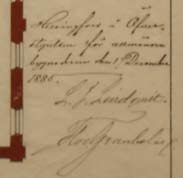 Helsingfors i Öfver-
styrelsen för allmänna
byggnaderna den 1 December
1886.
L. J. Lindqvist.